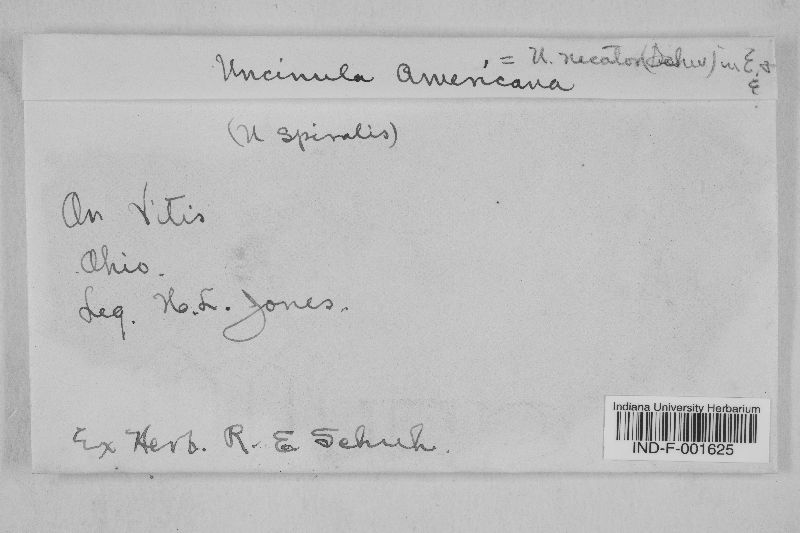 Uncinula americana = U. necator (Schw) in E &
E
(U spiralis)
On Vitis
Ohio.
Leg. H. L. Jones.
Ex Herb. R. E Schuh.
Indiana University Herbarium
IND-F-001625